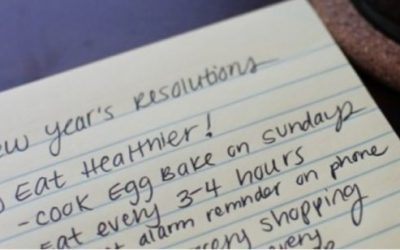 year's resolutions
Eat Healthier!
-cook Egg Bake on sundays
Eat every 3-4 hours
alarm reminder on phone
shopping